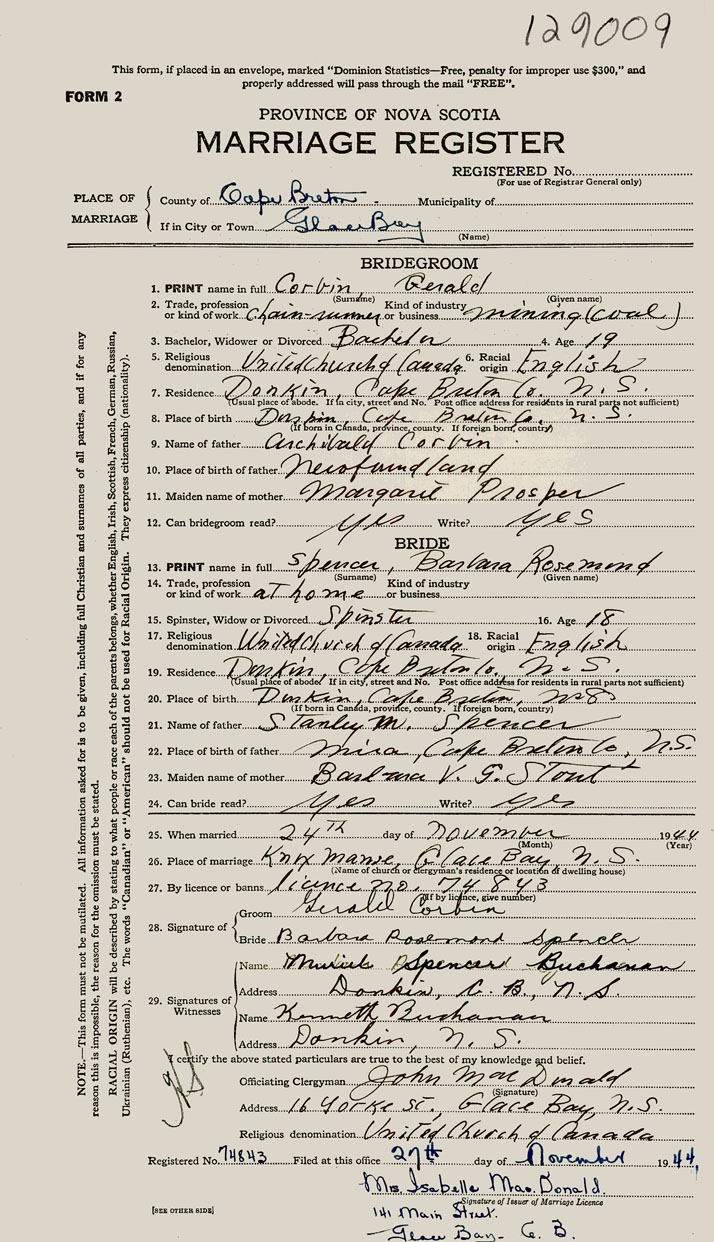 129009
This form, if placed in an envelope, marked "Dominion Statistics—Free, penalty for improper use $300," and
properly addressed will pass through the mail "FREE".
FORM 2
PROVINCE OF NOVA SCOTIA
MARRIAGE REGISTER
REGISTERED No.
(For use of Registrar General only)
PLACE OF MARRIAGE
County of Cape Breton - Municipality of
If in City or Town Glace Bay
(Name)
BRIDEGROOM
1. PRINT name in full Corbin, Gerald
(Surname) (Given name)
2. Trade, profession or kind of work Chain-runner Kind of industry or business mining (coal)
3. Bachelor, Widower or Divorced Bachelor 4. Age 19
5. Religious denomination United Church of Canada 6. Racial origin English
7. Residence Donkin, Cape Breton Co. N.S.
(Usual place of abode. If in city, street and No. Post office address for residents in rural parts not sufficient)
8. Place of birth Donkin, Cape Breton Co., N.S.
(If born in Canada, province, county. If foreign born, country)
9. Name of father Archibald Corbin
10. Place of birth of father Newfoundland
11. Maiden name of mother Margaret Prosper
12. Can bridegroom read? Yes Write? Yes
BRIDE
13. PRINT name in full Spencer, Barbara Rosemond
(Surname) (Given name)
14. Trade, profession or kind of work at home Kind of industry or business
15. Spinster, Widow or Divorced Spinster 16. Age 18
17. Religious denomination United Church of Canada 18. Racial origin English
19. Residence Donkin, Cape Breton Co., N.S.
(Usual place of abode. If in city, street and No. Post office address for residents in rural parts not sufficient)
20. Place of birth Donkin, Cape Breton, N.S.
(If born in Canada, province, county. If foreign born, country)
21. Name of father Stanley M. Spencer
22. Place of birth of father Mira, Cape Breton Co., N.S.
23. Maiden name of mother Barbara V. G. Stout
24. Can bride read? Yes Write? Yes
25. When married 24TH day of November 1944
(Month) (Year)
26. Place of marriage Knox Manse, Glace Bay, N.S.
(Name of church or clergyman's residence or location of dwelling house)
27. By licence or banns licence no. 74843
(If by licence, give number)
28. Signature of
Groom Gerald Corbin
Bride Barbara Rosemond Spencer
29. Signatures of Witnesses
Name Muriel Spencer Buchanan
Address Donkin, C.B., N.S.
Name Kenneth Buchanan
Address Donkin, N.S.
I certify the above stated particulars are true to the best of my knowledge and belief.
Officiating Clergyman John MacDonald
(Signature)
Address 16 Yorke St., Glace Bay, N.S.
Religious denomination United Church of Canada
Registered No. 74843 Filed at this office 27th day of November 1944,
Mrs. Isabelle MacDonald.
Signature of Issuer of Marriage Licence
141 Main Street.
Glace Bay- C.B.
[SEE OTHER SIDE]
NOTE.—This form must not be mutilated. All information asked for is to be given, including full Christian and surnames of all parties, and if for any
reason this is impossible, the reason for the omission must be stated.
RACIAL ORIGIN will be described by stating to what people or race each of the parents belongs, whether English, Irish, Scottish, French, German, Russian,
Ukrainian (Ruthenian), etc. The words "Canadian" or "American" should not be used for Racial Origin. They express citizenship (nationality).